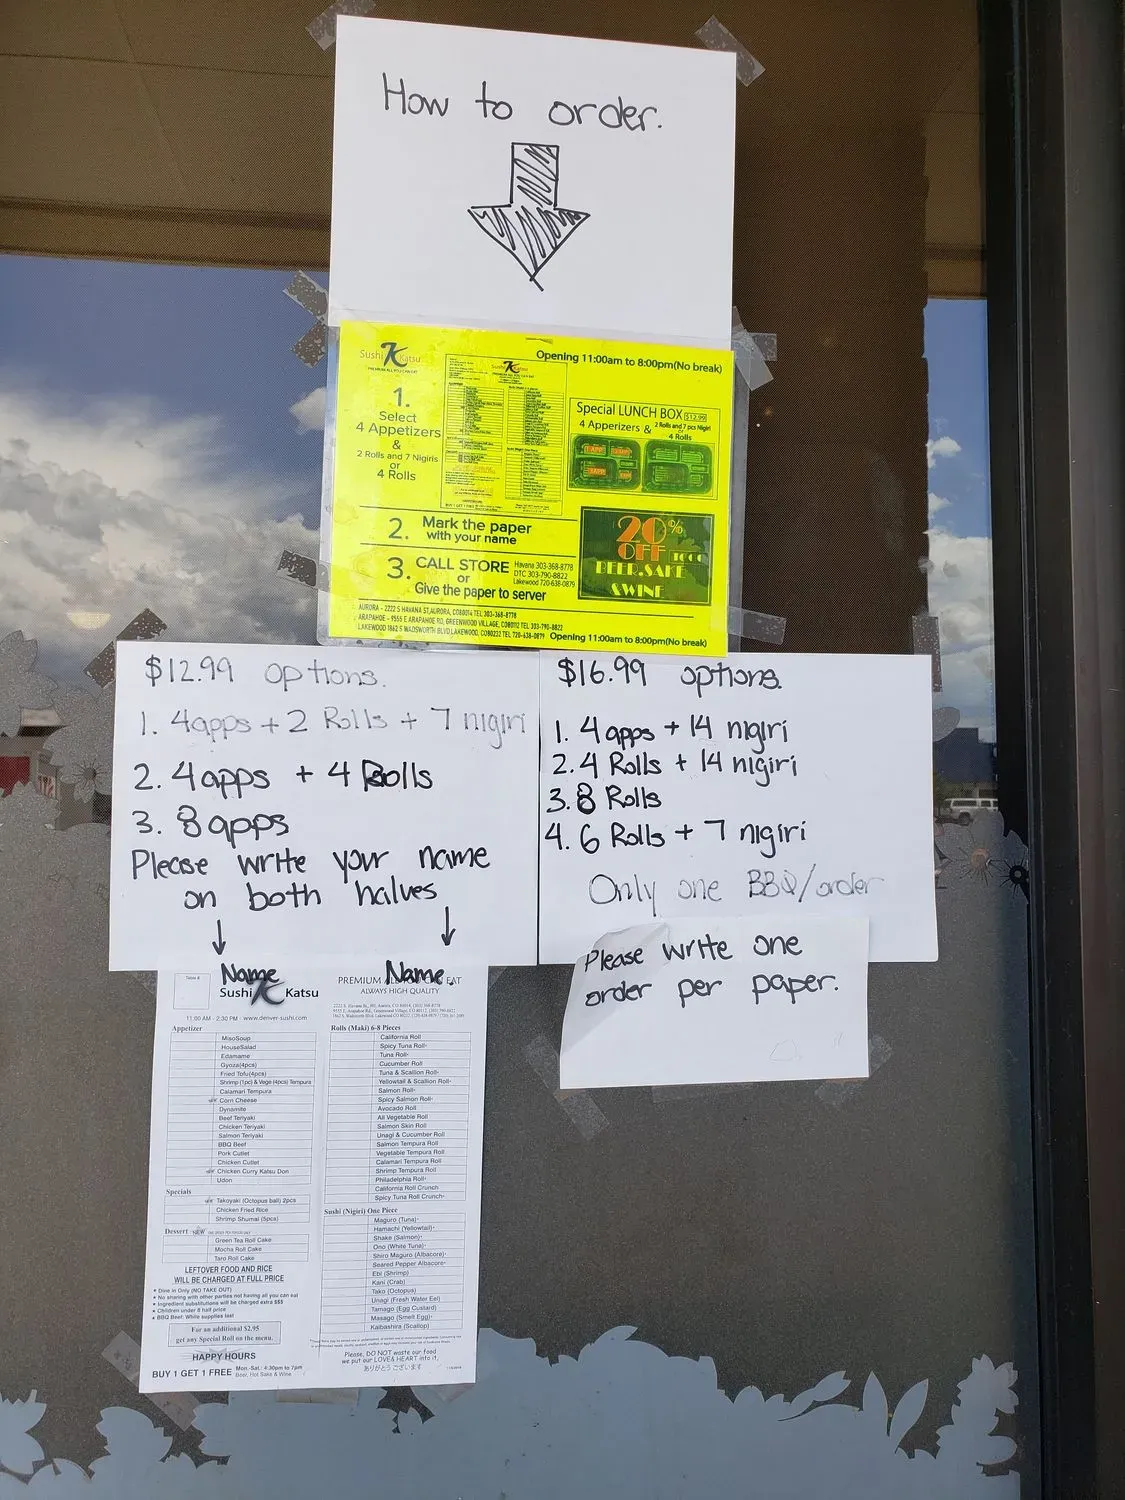 How to order.
Sushi K Katsu
PREMIUM ALL YOU CAN EAT
Opening 11:00am to 8:00pm(No break)
1.
Select
4 Appetizers
&
2 Rolls and 7 Nigiris
or
4 Rolls
Special LUNCH BOX $12.99
4 Apperizers & 2 Rolls and 7 pcs Nigiri
or
4 Rolls
2. Mark the paper
with your name
20% OFF TOGO
BEER.SAKE
&WINE
3. CALL STORE
or
Give the paper to server
Havana 303-368-8778
DTC 303-790-8822
Lakewood 720-638-0879
AURORA - 2222 S HAVANA ST,AURORA, CO80014 TEL 303-368-8778
ARAPAHOE - 9555 E ARAPAHOE RD, GREENWOOD VILLAGE, CO80112 TEL 303-790-8822
LAKEWOOD 1862 S WADSWORTH BLVD LAKEWOOD, CO80232 TEL 720-638-0879
Opening 11:00am to 8:00pm(No break)
$12.99 options.
1. 4apps + 2 Rolls + 7 nigiri
2. 4 apps + 4 Rolls
3. 8 apps
Please write your name
on both halves
$16.99 options.
1. 4 apps + 14 nigiri
2. 4 Rolls + 14 nigiri
3. 8 Rolls
4. 6 Rolls + 7 nigiri
Only one BBQ/order
Please write one
order per paper.
Name
Name.
Table #
Sushi K Katsu
11:00 AM - 2:30 PM · www.denver-sushi.com
Appetizer
MisoSoup
HouseSalad
Edamame
Gyoza(4pcs)
Fried Tofu(4pcs)
Shrimp (1pc) & Vege (4pcs) Tempura
Calamari Tempura
Corn Cheese
Dynamite
Beef Teriyaki
Chicken Teriyaki
Salmon Teriyaki
BBQ Beef
Pork Cutlet
Chicken Cutlet
Chicken Curry Katsu Don
Udon
Specials
Takoyaki (Octopus ball) 2pcs
Chicken Fried Rice
Shrimp Shumai (5pcs)
Dessert NEW
Green Tea Roll Cake
Mocha Roll Cake
Taro Roll Cake
LEFTOVER FOOD AND RICE
WILL BE CHARGED AT FULL PRICE
• Dine in Only (NO TAKE OUT)
• No sharing with other parties not having all you can eat
• Ingredient substitutions will be charged extra $$$
• Children under 8 half price
• BBQ Beef: While supplies last
For an additional $2.95
get any Special Roll on the menu.
HAPPY HOURS
BUY 1 GET 1 FREE
Mon.-Sat.: 4:30pm to 7pm
Beer, Hot Sake & Wine
PREMIUM ALL YOU CAN EAT
ALWAYS HIGH QUALITY
Rolls (Maki) 6-8 Pieces
California Roll
Spicy Tuna Roll*
Tuna Roll*
Cucumber Roll
Tuna & Scallion Roll*
Yellowtail & Scallion Roll*
Salmon Roll*
Spicy Salmon Roll*
Avocado Roll
All Vegetable Roll
Salmon Skin Roll
Unagi & Cucumber Roll
Salmon Tempura Roll
Vegetable Tempura Roll
Calamari Tempura Roll
Shrimp Tempura Roll
Philadelphia Roll*
California Roll Crunch
Spicy Tuna Roll Crunch*
Sushi (Nigiri) One Piece
Maguro (Tuna)*
Hamachi (Yellowtail)*
Shake (Salmon)*
Ono (White Tuna)*
Shiro Maguro (Albacore)*
Seared Pepper Albacore*
Ebi (Shrimp)
Kani (Crab)
Tako (Octopus)
Unagi (Fresh Water Eel)
Tamago (Egg Custard)
Masago (Smelt Egg)*
Kaibashira (Scallop)
Please, DO NOT waste our food
we put our LOVE & HEART into it,
ありがとうございます